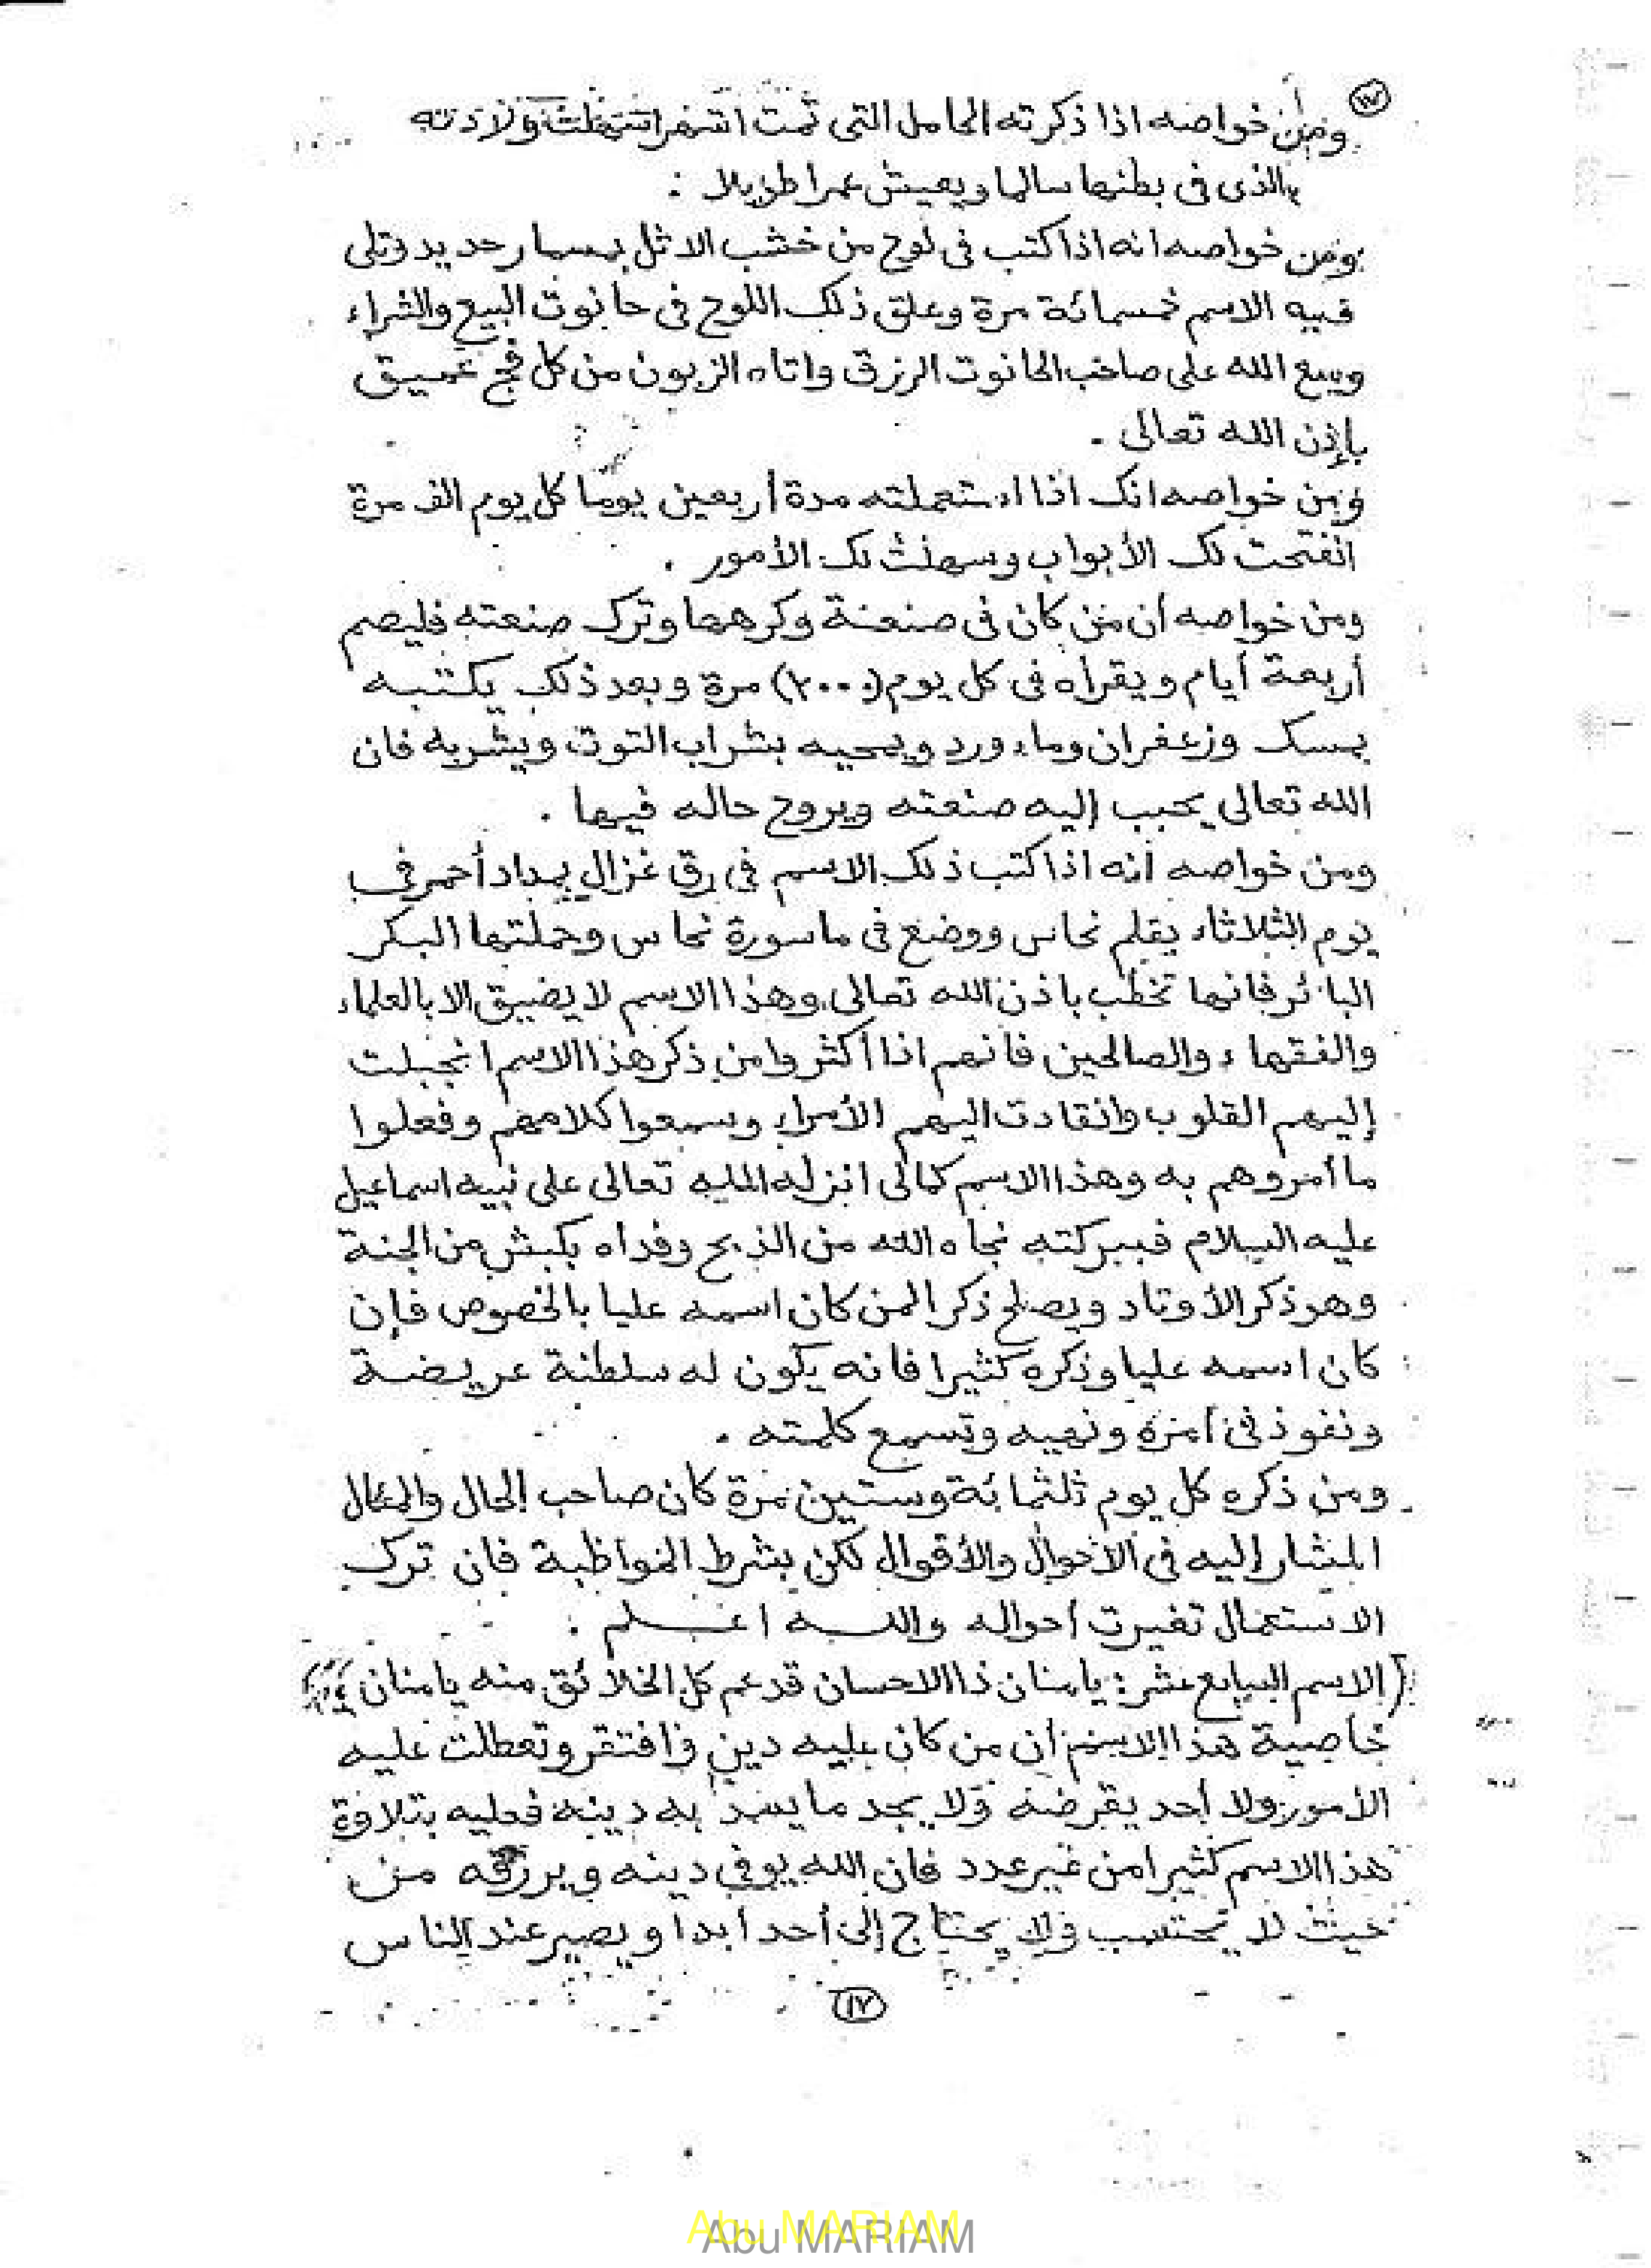 ١٧
ومن خواصه اذا ذكرته الحامل التى تمت اشهرا سهلت ولادته
الذى فى بطنها سالما ويعيش عمرا طويلا .
ومن خواصه انه اذا كتب فى لوح من خشب الاثل بمسمار حديد وتلى
فيه الاسم خمسمائة مرة وعلق ذلك اللوح فى حانوت البيع والشراء
وسع الله على صاحب الحانوت الرزق واتاه الزبون من كل فج عميق
بإذن الله تعالى .
ومن خواصه انك اذا استعملته مدة أربعين يوما كل يوم الف مرة
انفتحت لك الأبواب وسهلت لك الأمور .
ومن خواصه أن من كان فى صنعة وكرهها وترك صنعته فليصم
أربعة أيام ويقرأه فى كل يوم (٢٠٠٠) مرة وبعد ذلك يكتبه
بمسك وزعفران وماء ورد ويمحيه بشراب التوت ويشربه فان
الله تعالى يحبب إليه صنعته ويروح حاله فيها .
ومن خواصه انه اذا كتب ذلك الاسم فى رق غزال بمداد أحمر فى
يوم الثلاثاء بقلم نحاس ووضع فى ماسورة نحاس وحملتها البكر
البائر فانها تخطب باذن الله تعالى وهذا الاسم لا يضيق الا بالعلماء
والفقهاء والصالحين فانهم اذا أكثروا من ذكر هذا الاسم انجبلت
إليهم القلوب وانقادت اليهم الأمراء وسمعوا كلامهم وفعلوا
ما أمروهم به وهذا الاسم كمالى انزله الله تعالى على نبيه اسماعيل
عليه السلام فببركته نجاه الله من الذبح وفداه بكبش من الجنة
وهو ذكر الأوتاد ويصلح ذكرا لمن كان اسمه عليا بالخصوص فإن
كان اسمه عليا وذكره كثيرا فانه يكون له سلطنة عريضة
ونفوذ فى أمره ونهيه وتسمع كلمته .
ومن ذكره كل يوم ثلثمائة وستين مرة كان صاحب الحال والمقال
المشار إليه فى الأحوال والأقوال لكن بشرط المواظبة فان ترك
الاستعمال تغيرت أحواله والله اعلم .
(الاسم السابع عشر: يا منان ذا الاحسان قد عم كل الخلائق منه يا منان
خاصية هذا الاسم أن من كان عليه دين وافتقر وتعطلت عليه
الأمور ولا أحد يقرضه ولا يجد ما يسد به دينه فعليه بتلاوة
هذا الاسم كثيرا من غير عدد فان الله يوفى دينه ويرزقه من
حيث لا يحتسب ولا يحتاج إلى أحد أبدا ويصير عند الناس
١٧
Abu MARIAM